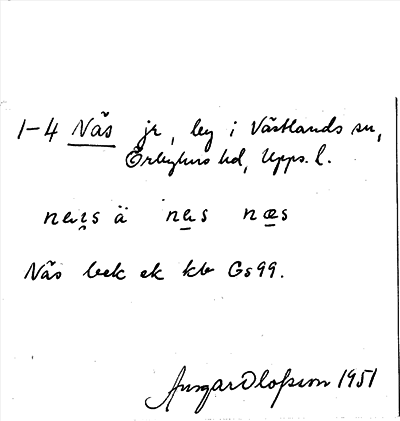 1-4 Näs jr, by i Västlands sn,
Örbyhus hd, Upps. l.
ä næs
Näs bek ek kb Gs99.
Ansgar Olofsson 1951